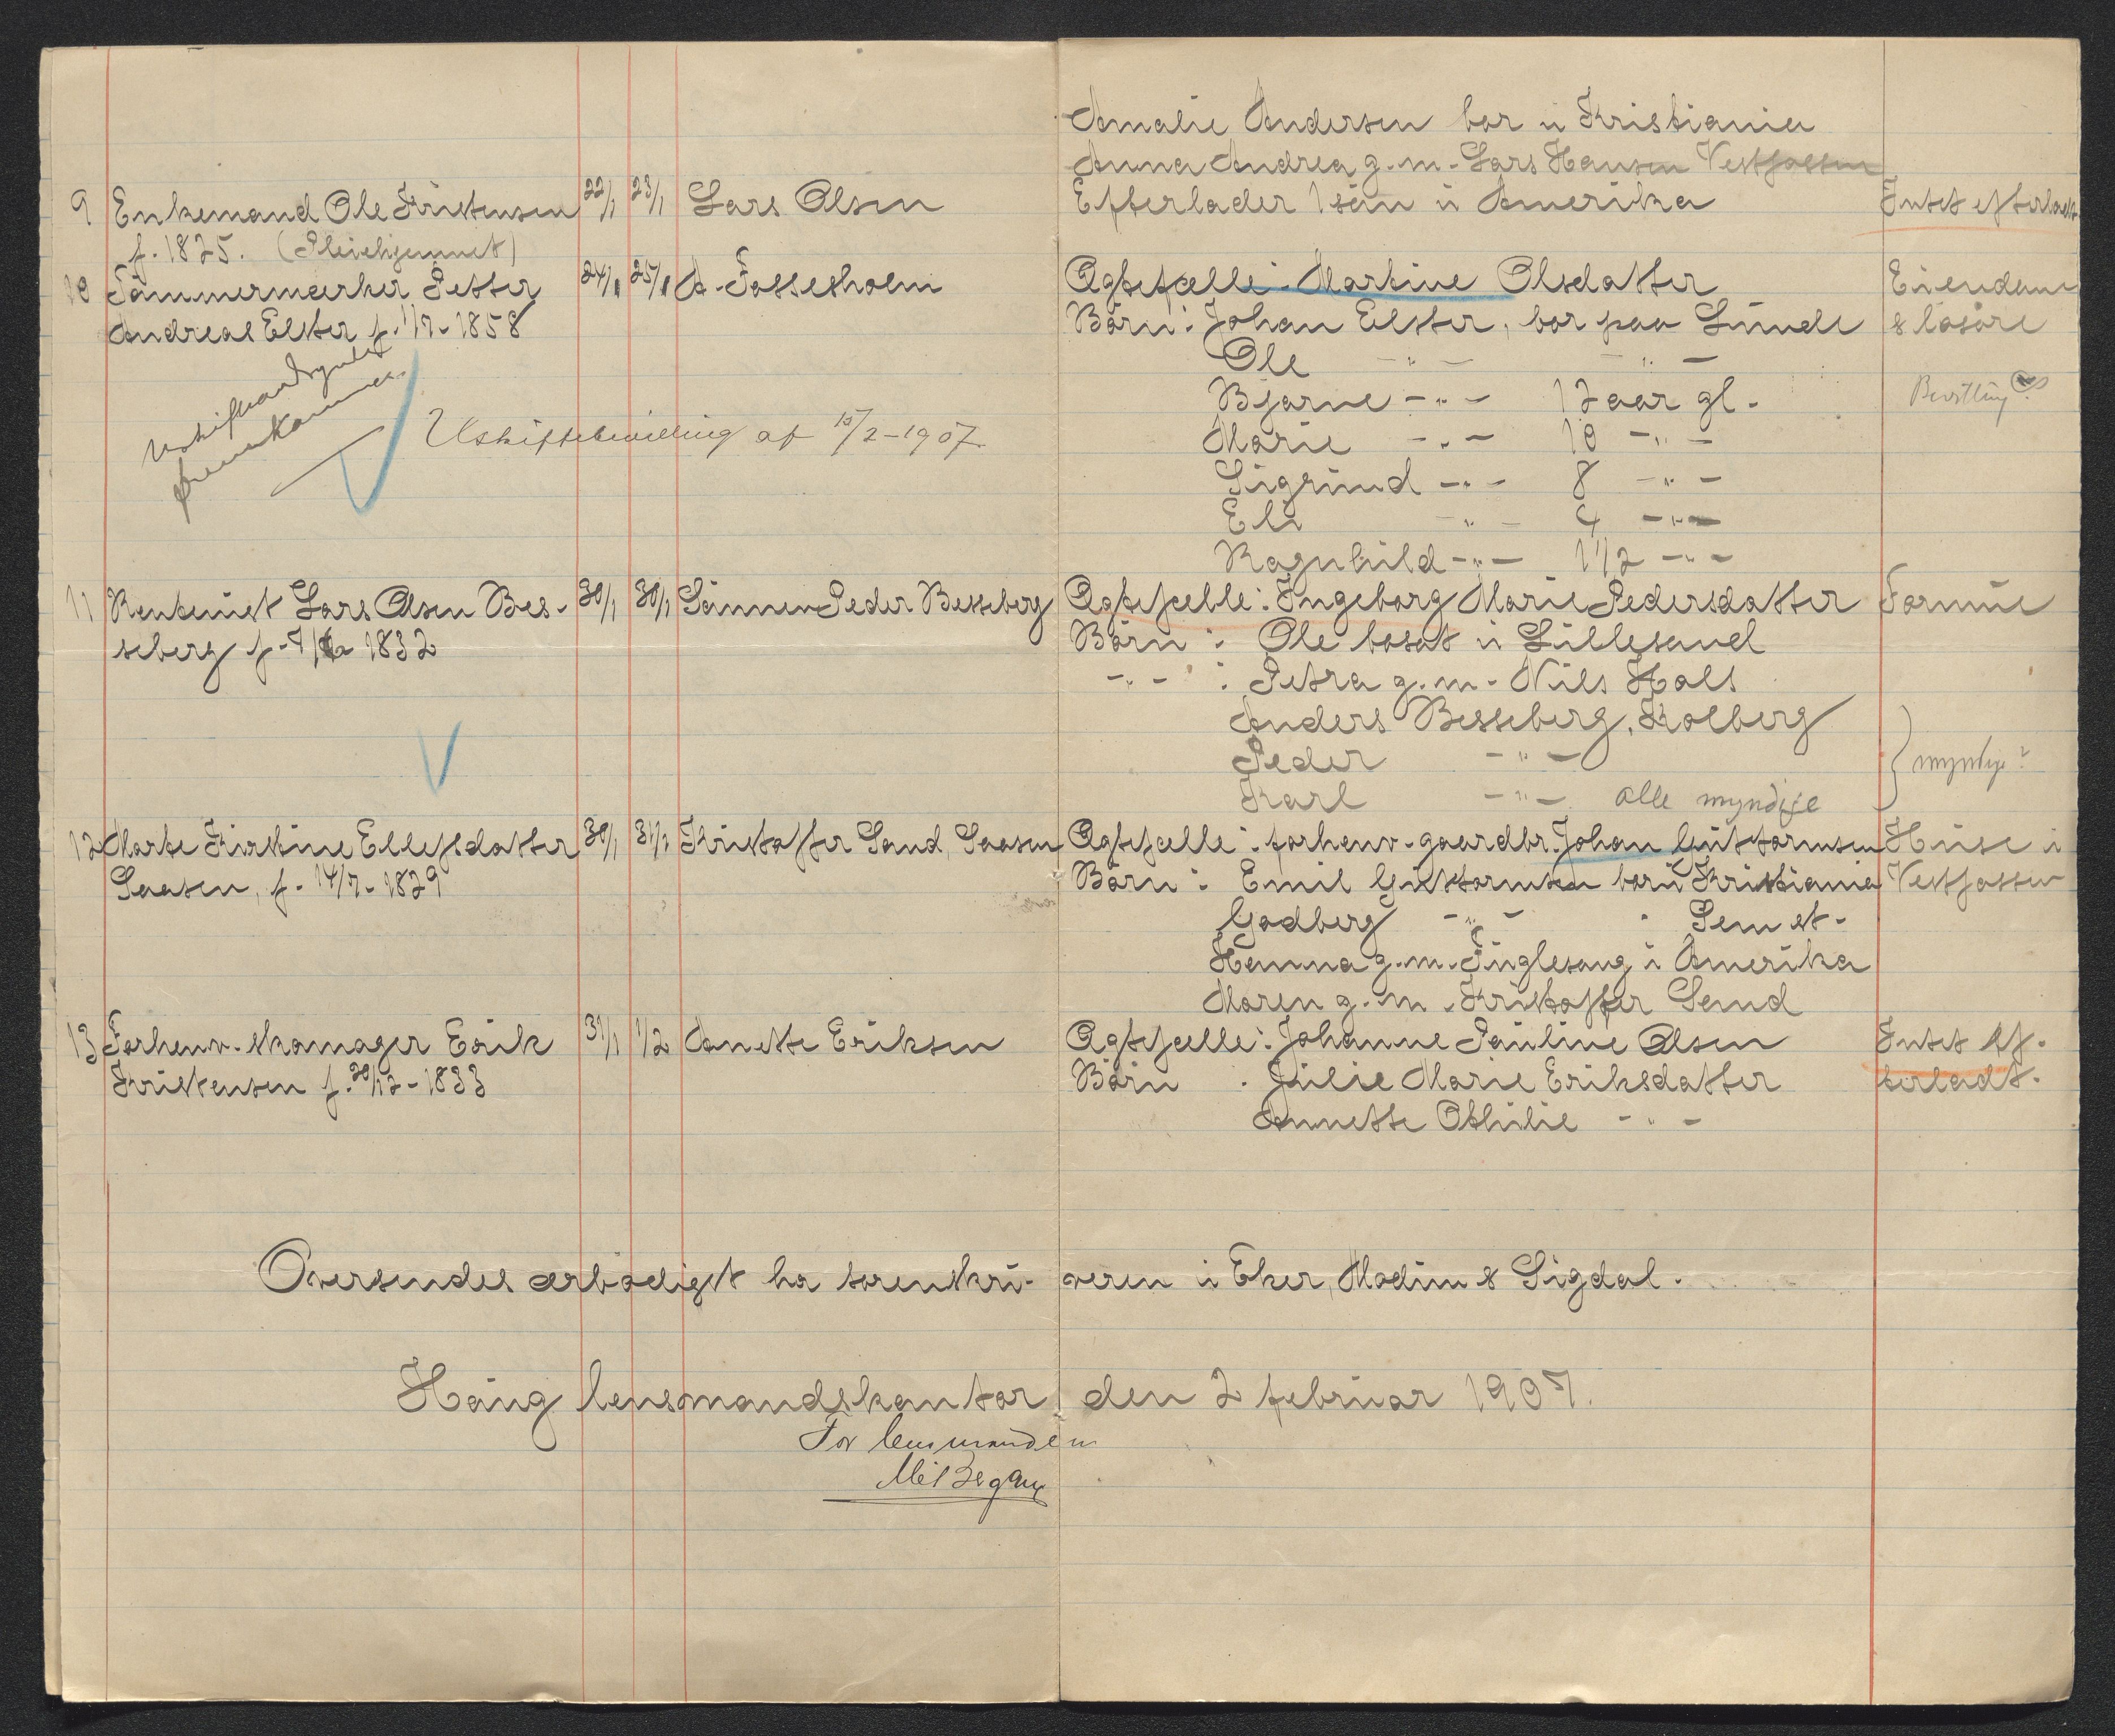 Amalie Andersen bor i Kristiania
Anna Andrea g.m. Lars Hansen Vestfossen
9 Enkemand Ole Kristensen 22/1 23/1 Lars Olsen Efterlader 1 sön i Amerika Intet efterladt
f. 1825. (Pleiehjemmet)
10 Tömmermærker Petter 24/1 25/1 A. Fossesholm Ægtefælle: Martine Olsdatter Eiendom
Andreas Elster f. 1/7-1858 Börn: Johan Elster, bor paa Lunde & lösöre
Ole -"- -"-
Bjarne -"- 12 aar gl. Bevilling?
Uskiftet
fremkommer
Uskiftebevilling af 15/2-1907
Marie -"- 10 -"-
Sigrund -"- 8 -"-
Eli -"- 4 -"-
Ragnhild -"- 1 1/2 -"-
11 Rentenist Lars Olsen Bes- 30/1 30/1 Sönnen Peder Besseberg Ægtefælle: Ingeborg Marie Pedersdatter Formue
seberg f. 1832 Börn: Ole bosat i Lillesand
-"- : Petra g.m. Nils Hals
Anders Besseberg, Kolberg
Peder -"- myndige?
Karl -"- alle myndige
12 Marte Kirstine Ellefsdatter 30/1 31/1 Kristoffer Sand, Saasen Ægtefælle: forhenv. gaardbr. Johan Guttormsen Huse i
Saasen, f. 14/7-1829 Börn: Emil Guttormsen bor i Kristiania Vestfossen
Godberg -"- Sem st.
Hanna g.m. Fuglesang i Amerika
Maren g.m. Kristoffer Sand
13 Forhenv. skomager Erik 31/1 1/2 Anette Eriksen Ægtefælle: Johanne Pauline Olsen Intet ef-
Kristensen f. 20/12-1833 Börn : Julie Marie Eriksdatter terladt.
Annette Othilie -"-
Oversendes ærbödigst hr sorenskri- veren i Eker, Modum & Sigdal.
Haug lensmandskontor, den 2 februar 1907.
For lensmanden